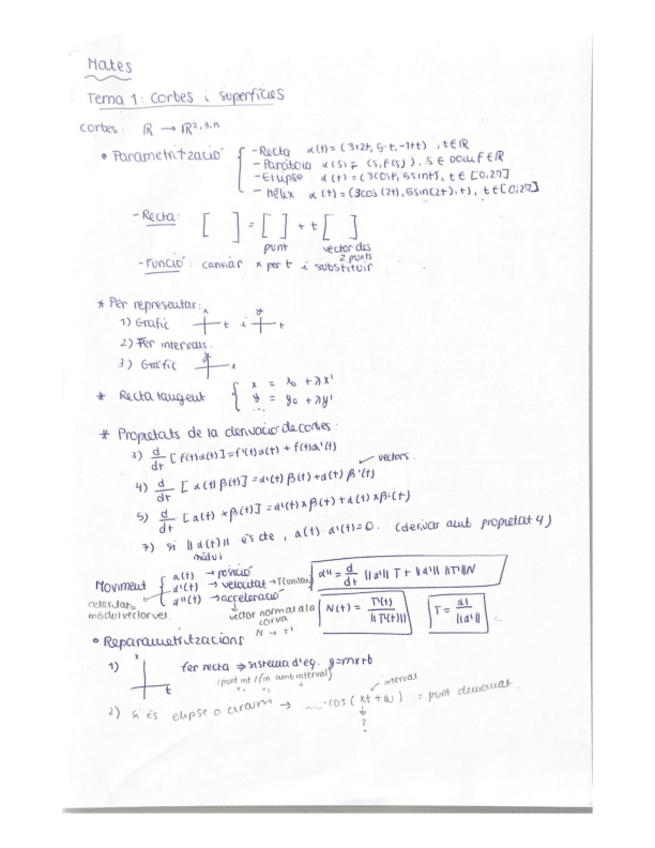 Mates
Tema 1: Corbes i superfícies
corbes: ℝ → ℝ²,³,ⁿ
• Parametrització { - Recta α(t) = (3+2t, 5-t, -1+t), t∈ℝ
- Paràbola α(s) = (s, f(s)), s ∈ Dom f ∈ ℝ
- El·lipse α(t) = (3cost, 5sint), t ∈ [0,2π]
- Hèlix α(t) = (3cos(2t), 5sin(2t), t), t∈[0,2π]
- Recta: [ ] = [ ] + t [ ]
punt vector des 2 punts
- Funció: canviar x per t i substituir
* Per representar:
1) Gràfic x t i y t
2) Fer intervals.
3) Gràfic y x
* Recta tangent { x = x₀ + λx'
y = y₀ + λy'
...
* Propietats de la derivació de corbes:
3) d/dt [f(t)α(t)] = f'(t)α(t) + f(t)α'(t)
4) d/dt [α(t)β(t)] = α'(t)β(t) + α(t)β'(t) vectors
5) d/dt [α(t)×β(t)] = α'(t)×β(t) + α(t)×β'(t)
7) si ||α(t)|| és cte, α(t)·α'(t)=0. (derivar amb propietat 4)
mòdul
Moviment { α(t) → posició
α'(t) → velocitat → T(unitari)
α''(t) → acceleració
celeritat = mòdul vector vel.
vector normal a la corva
N → T'
α'' = d/dt ||α'|| T + ||α'|| ||T'|| N
N(t) = T'(t)/||T'(t)||
T = α'/||α'||
• Reparametritzacions
1) x t fer recta ⇒ sistema d'eq. y=mx+b
(punt int /fin amb interval)
2) si és el·lipse o → ·cos(kt+ω) = punt demanat.
interval
?